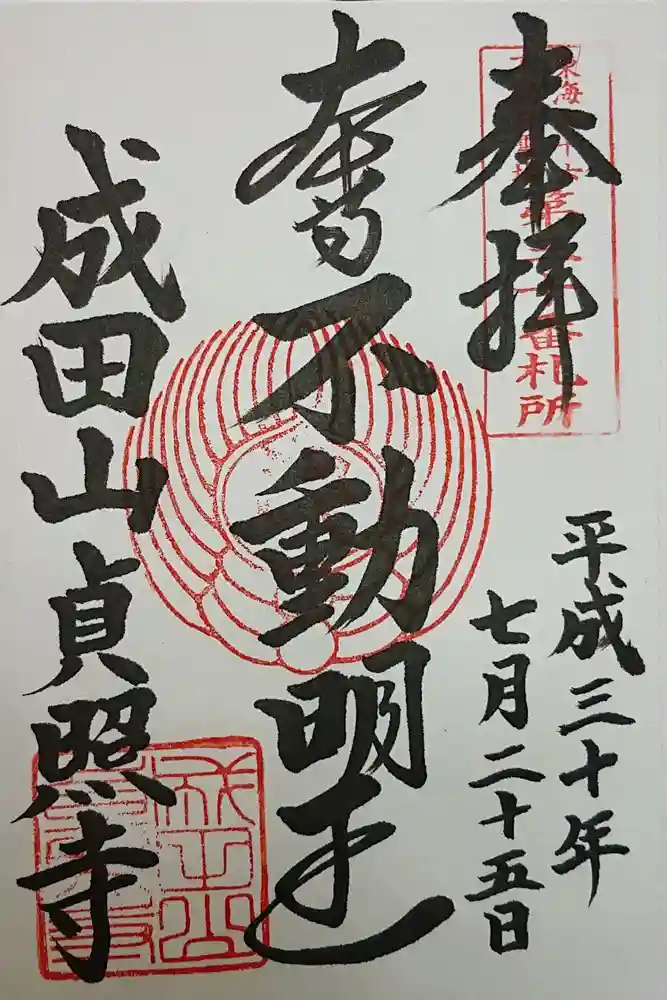 奉拝
東海
番札所
平成三十年
七月二十五日
不動明王
成田山貞照寺